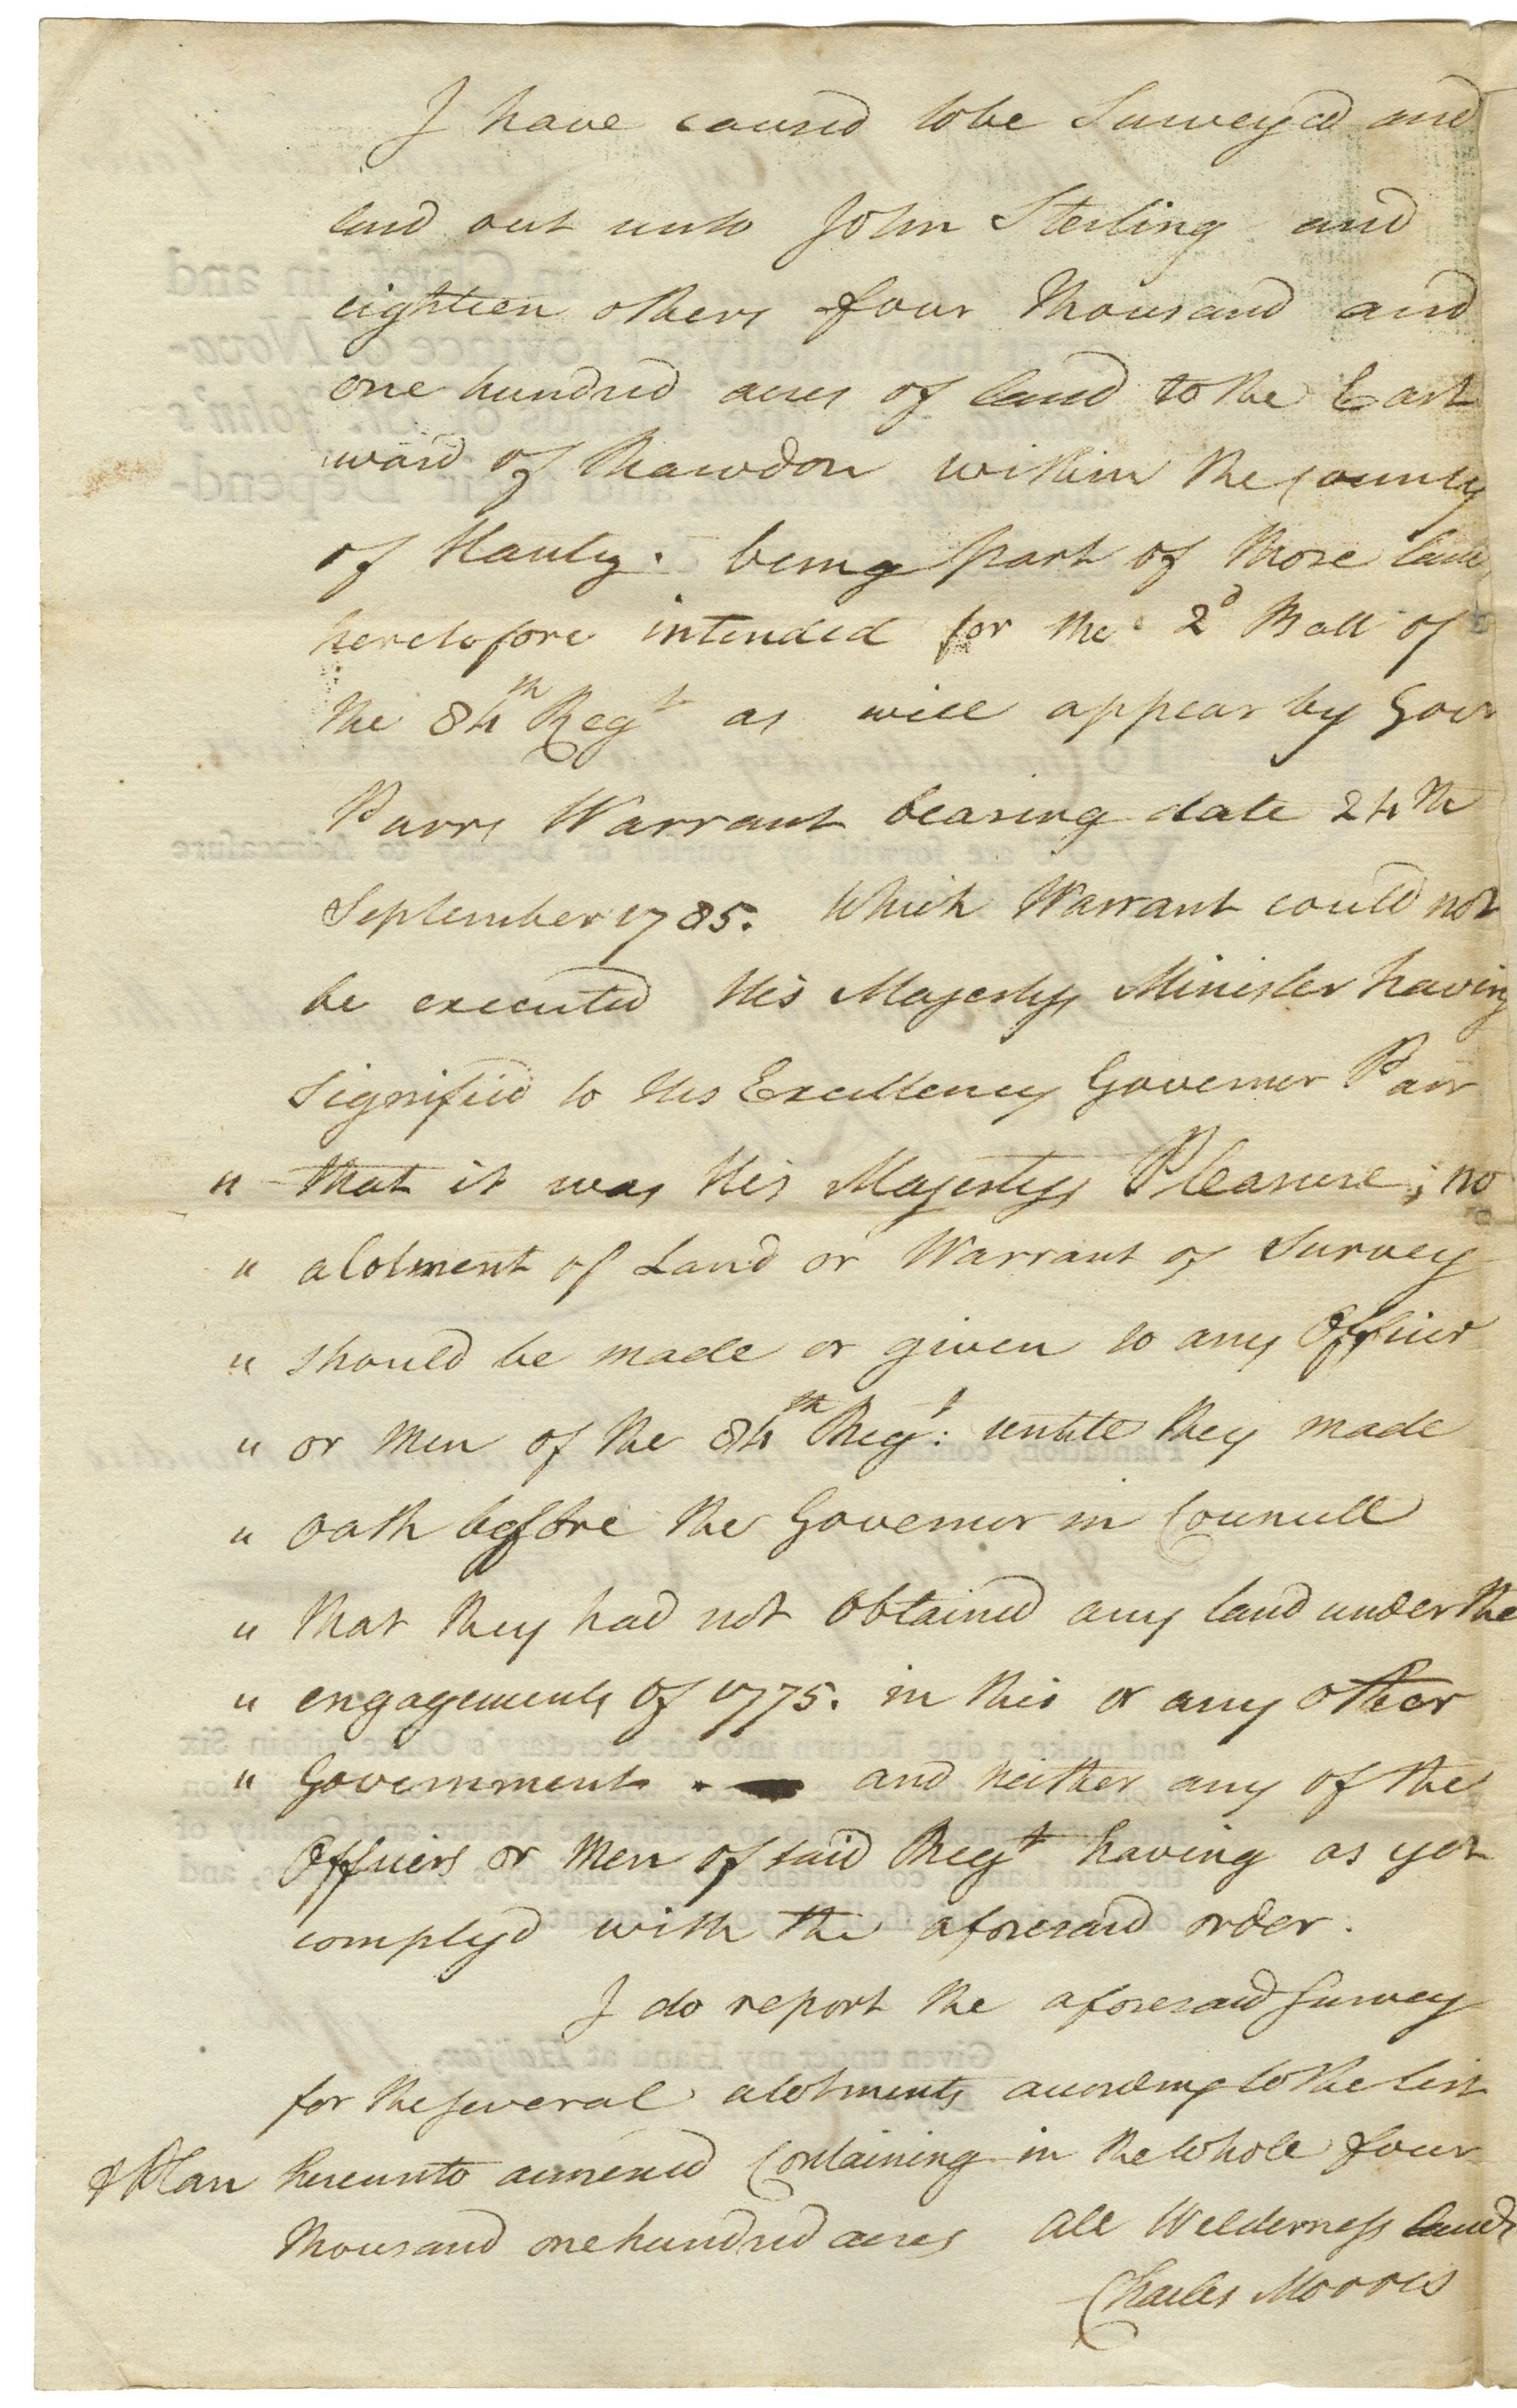 I have caused to be Surveyed and
laid out unto John Sterling and
eighteen others four thousand and
one hundred acres of land to the East
ward of Rawdon within the County
of Hants. being part of those land
heretofore intended for the 2d Batt of
the 84th Regt as will appear by Govr
Parrs Warrant bearing date 24th
September 1785. Which Warrant could not
be executed His Majestys Minister having
signified to His Excellency Governor Parr
" that it was His Majestys Pleasure; no
" alotment of Land or Warrant of Survey
" should be made or given to any Officer
" or Men of the 84th Regt: untill they made
" oath before the Governor in Councill
" that they had not Obtained any land under the
" engagements of 1775. in this or any other
" Government. — and neither any of the
Officers or Men of said Regt having as yet
complyd with the aforesaid order.
I do report the aforesaid Survey
for the several alotments according to the list
& Plan hereunto annexed Containing in the whole four
thousand one hundred acres All Wilderness lands
Charles Morris